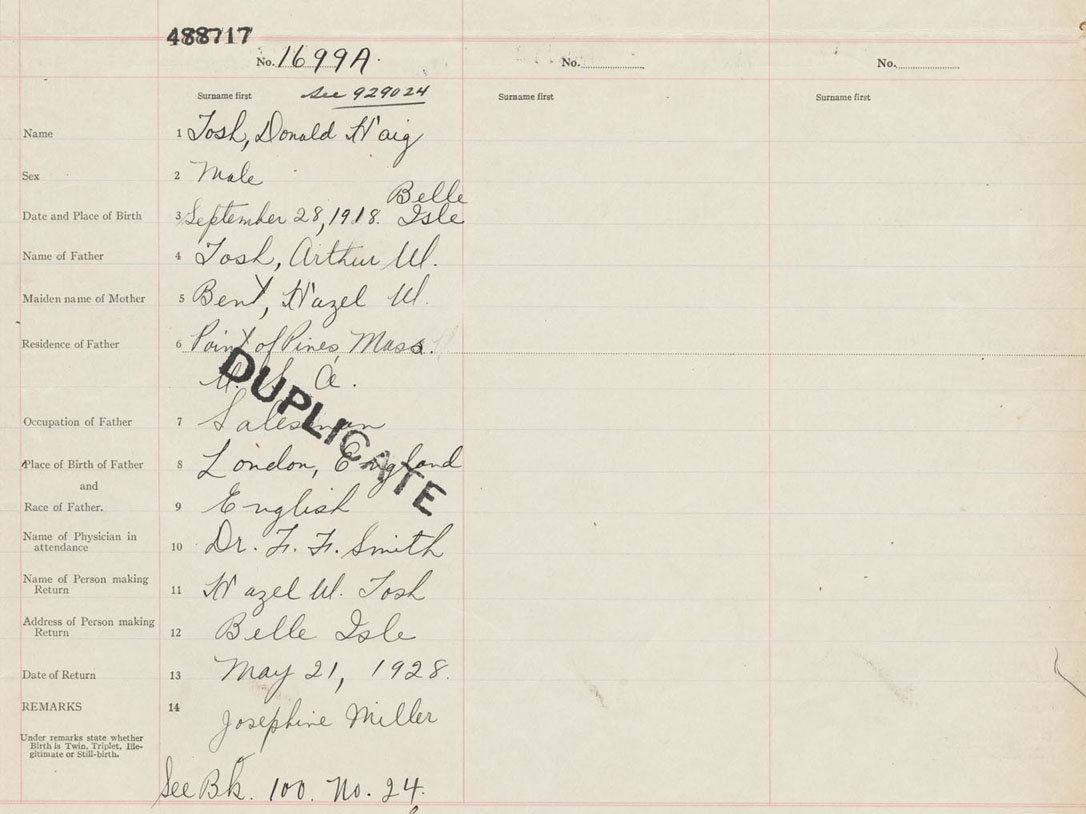 488717
No. 1699A. No. No.
Surname first See 929024 Surname first Surname first
Name 1 Tosh, Donald Haig
Sex 2 Male
Belle
Date and Place of Birth 3 September 28, 1918. Isle
Name of Father 4 Tosh, Arthur W.
Maiden name of Mother 5 Bent, Hazel W.
Residence of Father 6 Point of Pines, Mass.
U. S. A.
DUPLICATE
Occupation of Father 7 Salesman
Place of Birth of Father 8 London, England
and
Race of Father. 9 English
Name of Physician in
attendance 10 Dr. F. F. Smith
Name of Person making
Return 11 Hazel W. Tosh
Address of Person making
Return 12 Belle Isle
Date of Return 13 May 21, 1928.
REMARKS 14 Josephine Miller
Under remarks state whether
Birth is Twin, Triplet, Ille-
gitimate or Still-birth.
See Bk. 100. No. 24.